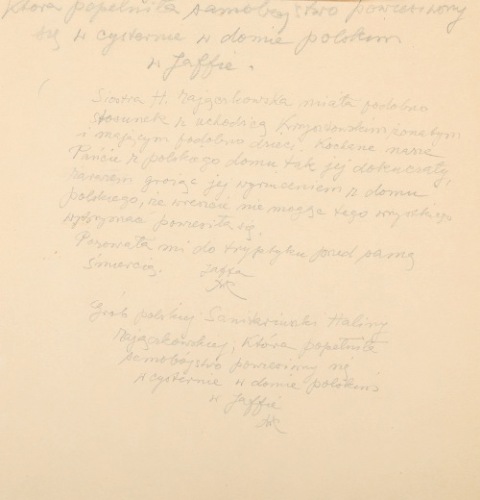 która popełniła samobójstwo powiesiwszy
się w cysternie w domie polskim
w Jaffie.
Siostra H. Zajączkowska miała podobno
stosunek z uchodźcą żonatym
i mającym podobno dzieci. Kochane nasze
Panie z polskiego domu tak jej dokuczały,
zarazem grożąc jej wyrzuceniem z domu
polskiego, że wreszcie nie mogąc tego wszystkiego
wytrzymać powiesiła się.
Pozowała mi do tryptyku przed samą
śmiercią. Jaffa
Grób polskiej Sanitariuszki Haliny
Zajączkowskiej, która popełniła
samobójstwo powiesiwszy się
w cysternie w domie polskim
w Jaffie